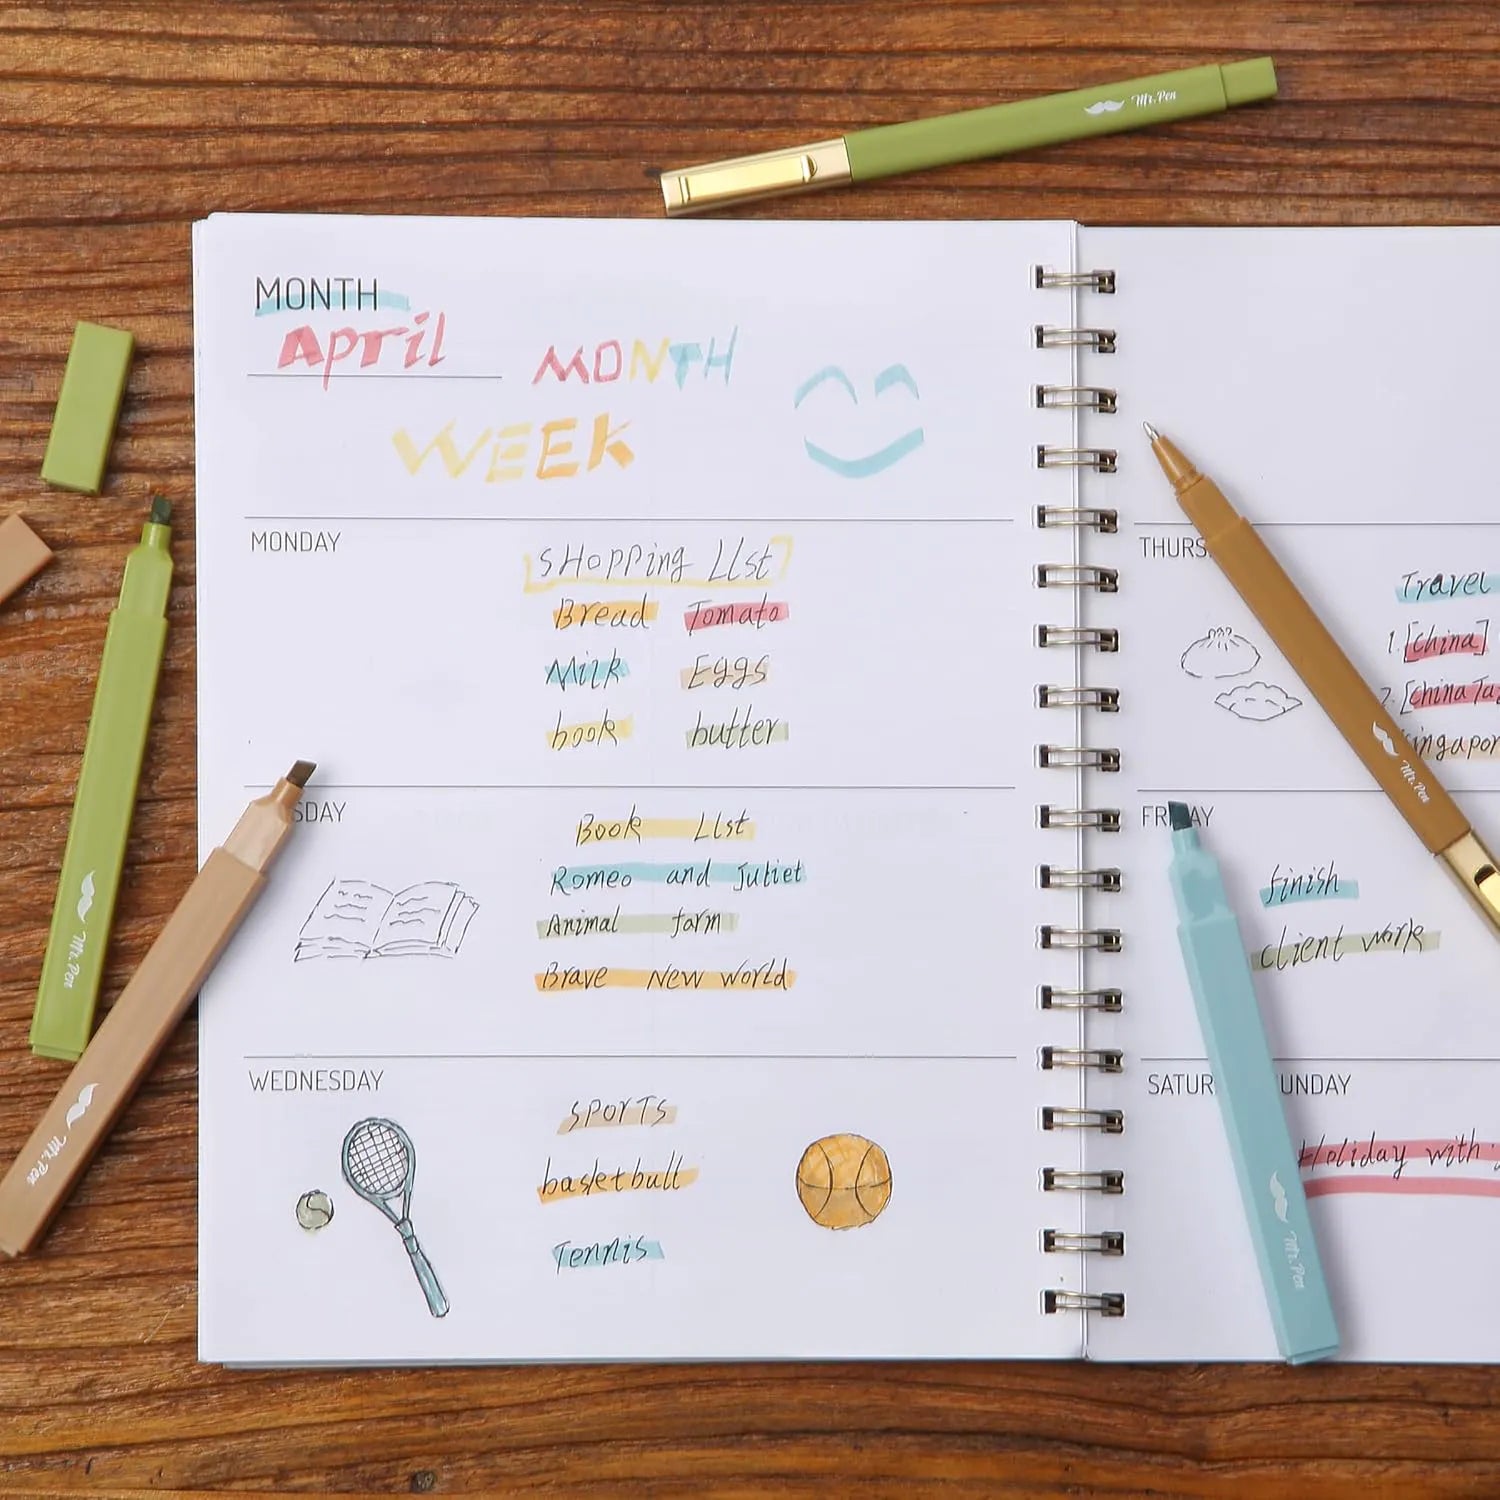 Mr. Pen
MONTH
April
MONTH
WEEK
MONDAY
sHopping LIst
Bread Tomato
Milk Eggs
book butter
SDAY
Book LIst
Romeo and Juliet
Animal farm
Brave New world
WEDNESDAY
sporTs
basketball
Tennis
THURS
Travel
1. [china]
2. [china
FRI AY
finish
client work
SATUR UNDAY
Holiday with
Mr. Pen
Mr. Pen
Mr. Pen
Mr. Pen